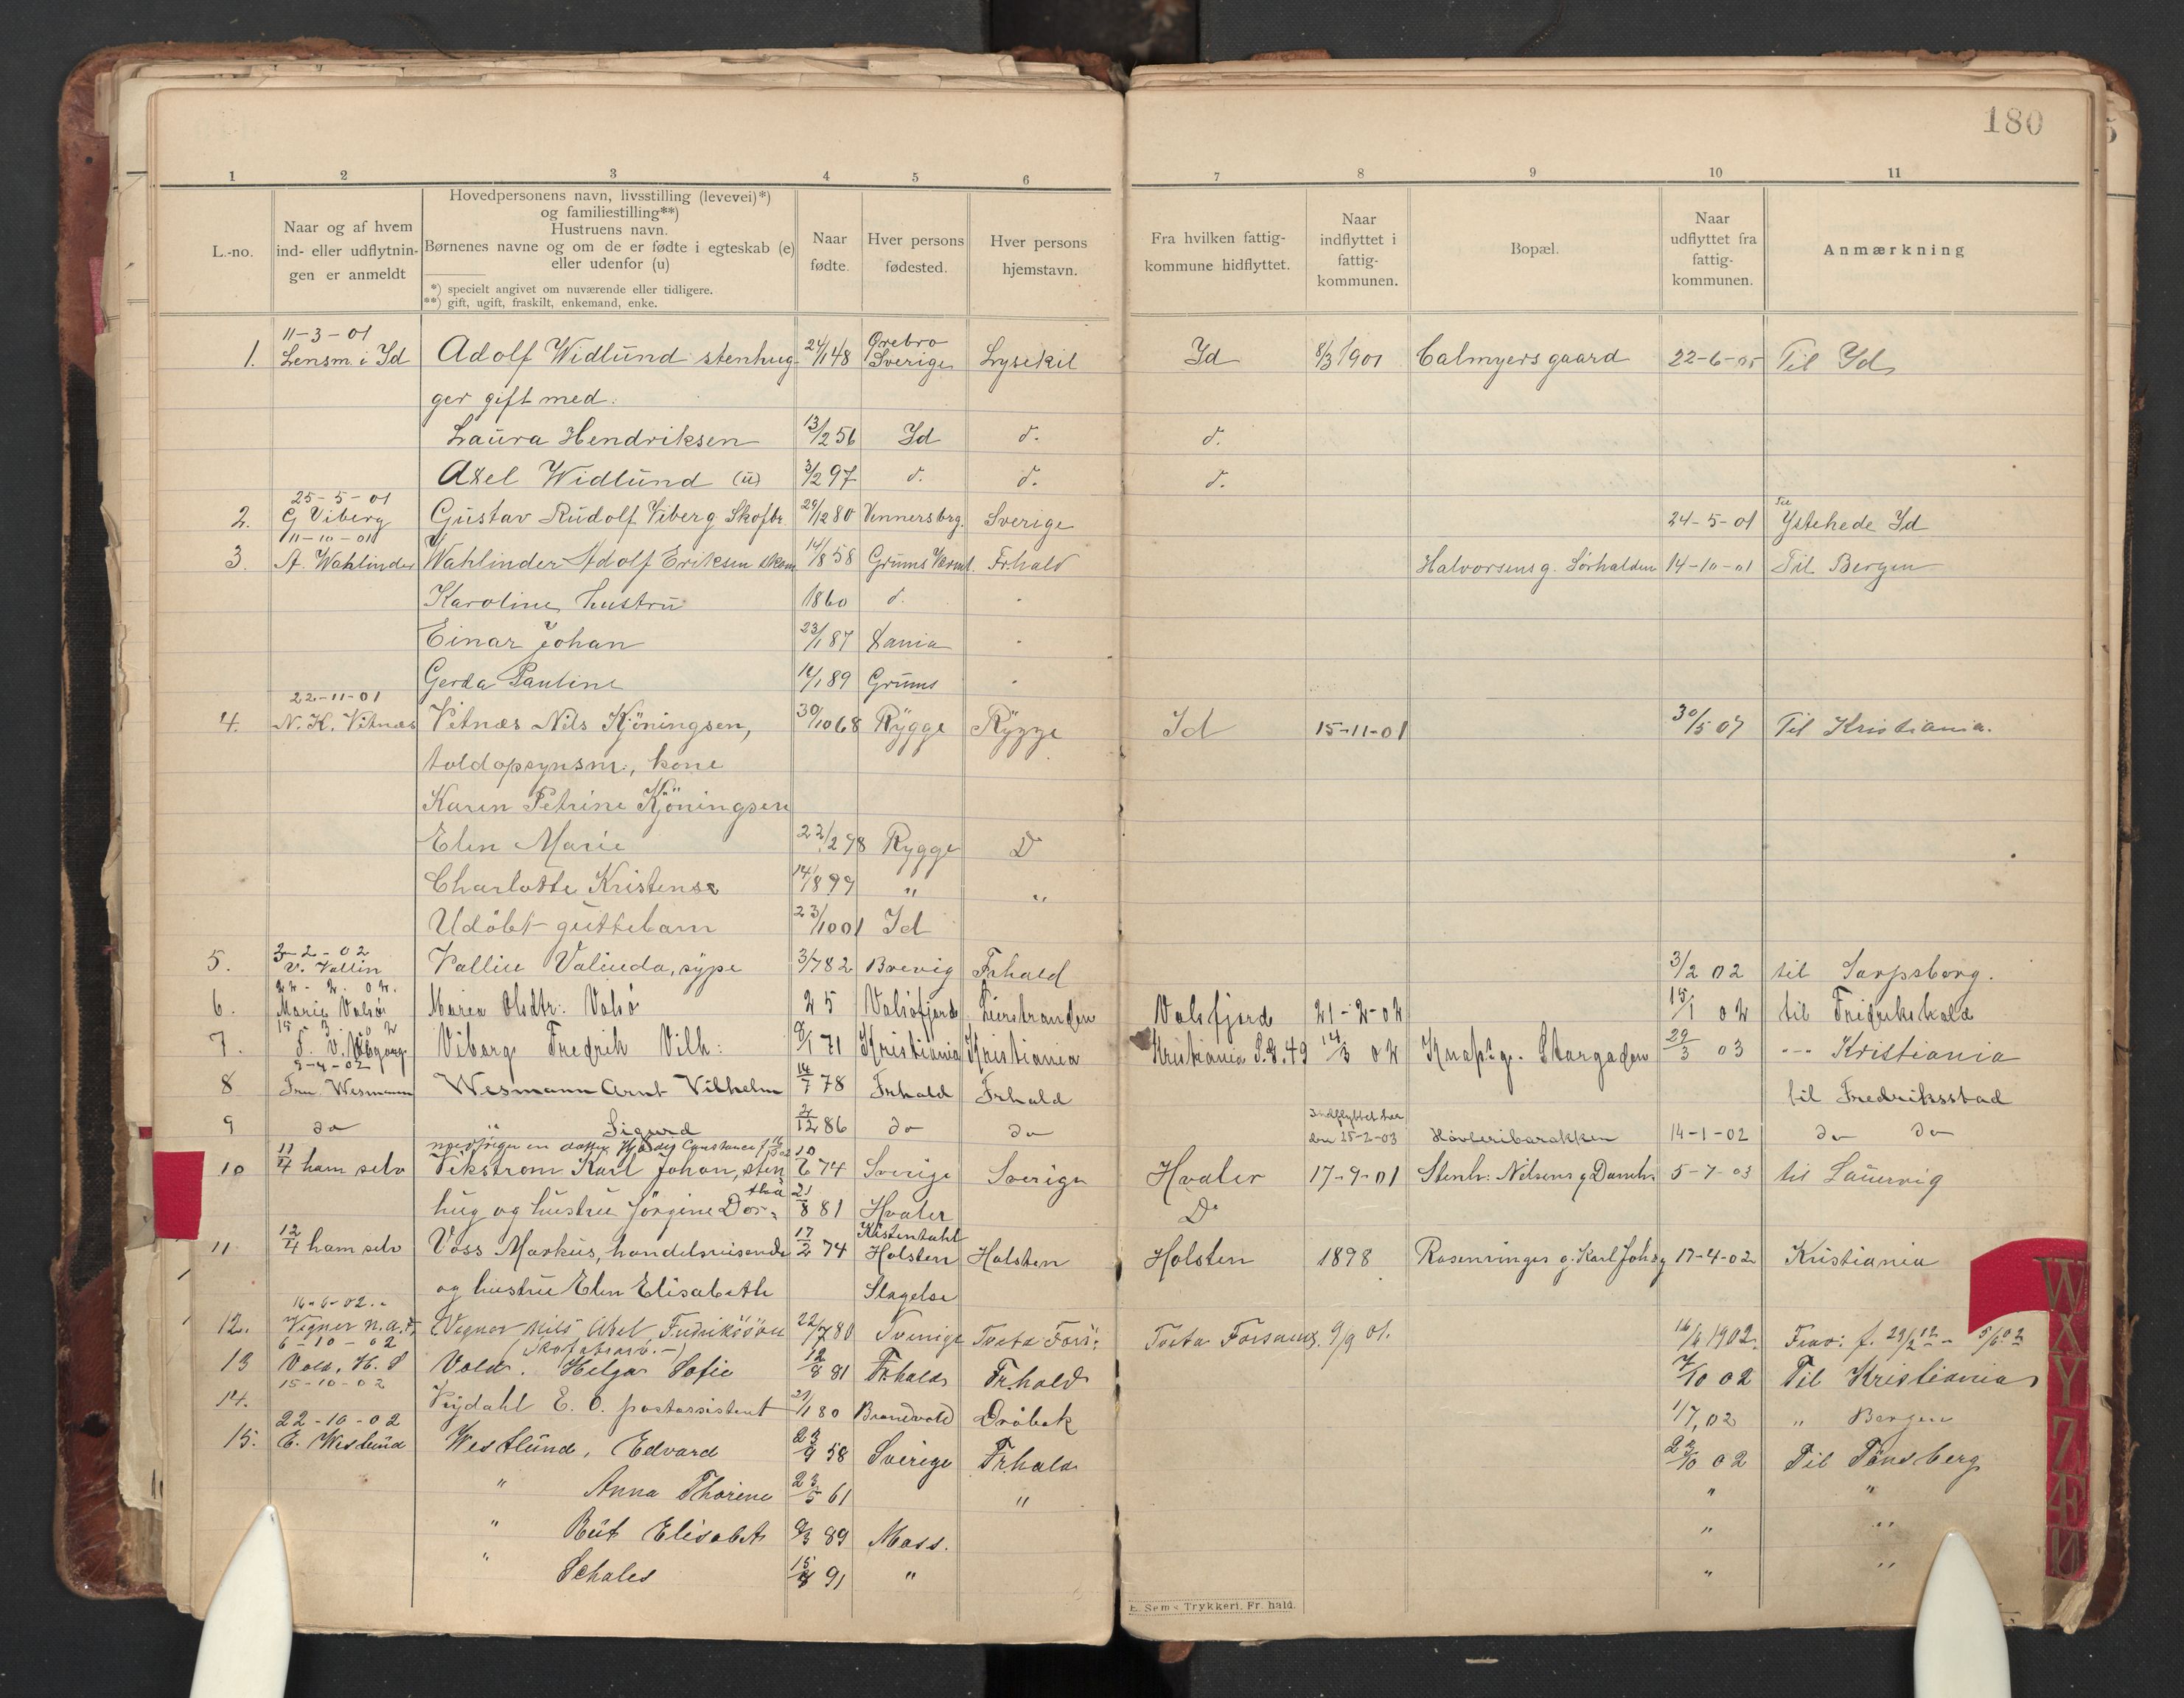 180
1 2 3 4 5 6 7 8 9 10 11
L.-no.
Naar og af hvem
ind- eller udflytnin-
gen er anmeldt
Hovedpersonens navn, livsstilling (levevei)*)
og familiestilling**)
Hustruens navn.
Børnenes navne og om de er fødte i egteskab (e)
eller udenfor (u)
*) specielt angivet om nuværende eller tidligere.
**) gift, ugift, fraskilt, enkemand, enke.
Naar
fødte.
Hver persons
fødested.
Hver persons
hjemstavn.
Fra hvilken fattig-
kommune hidflyttet.
Naar
indflyttet i
fattig-
kommunen.
Bopæl.
Naar
udflyttet fra
fattig-
kommunen.
Anmærkning
11-3-01 Ørebro
1. Lensm. i Id Adolf Widlund stenhug- 24/1 48 Sverige Lysekil Id 8/3 1901 Calmyers gaard 22-6-05 Til Id
ger gift med.
Laura Hendriksen 13/2 56 Id d. d.
Axel Widlund (u) 3/2 97 d. d. d.
25-5-01
2. G Viberg Gustav Rudolf Viberg Skofbr. 20/12 80 Vennersbrg. Sverige 24-5-01 til Ystehede Id
11-10-01
3. A. Wahlinder Wahlinder Adolf Eriksen 14/8 58 Grums Frhald Halvorsens g. Sørhalden 14-10-01 Til Bergen
Karoline hustru 1860 d.
Einar Johan 23/1 87
Gerda Pauline 89 Grums
22-11-01
4. N. K. Vitnæs Vitnæs Nils Kjöningsen, 30/10 68 Rygge Rygge Id 15-11-01 30/5 07 Til Kristiania.
toldopsynsm., kone
Karen Petrine Kjöningsen
Elen Marie 22/2 98 Rygge D
Charlotte Kristense 14/8 99 " "
Udöbt guttebarn 23/10 01 Id
3-2-02
5. V. Vallin Vallin Valinda, sype 3/7 82 Brevig Frhald 3/2 02 til Sarpsborg.
22-2-02.
6. Marie Valsö Maren Olsdtr. Valsö 25 Valsöfjord Leirstranden Valsfjord 21-2-02 15/1 02 til Fredrikshald
15 3 02
7. F. V. Viborg Viborg Fredrik Vilh: 9/1 71 Kristiania Kristiania Kristiania 14/3 02 Storgaden 29/3 03 --- Kristiania
9-4-02
8 Fru Wesmann Wesmann Arnt Vilhelm 14/7 78 Frhald Frhald til Fredriksstad
9 do " Sigurd 12 86 do do Indflyttet her den 25-2-03 Høvleribarakken 14-1-02 do do
10 11/4 ham selv Vekstrom Karl Johan, sten 10/6 74 Sverige Sverige Hvaler 17-9-01 Stenh: Nilsens g Damh. 5-7-03 til Laurvig
hug og hustru Jörgine Dor- thea 21/8 81 Hvaler Do
11 12/4 ham selv Voss Markus, handelsreisende 17/2 74 Holsten Holsten Holsten 1898 Rosenringes g. Karl Johsg 17-4-02 Kristiania
og hustru Elen Elisabeth Slagelse
16-6-02.
12. Vegner N. A. F. Vegner Nils Axel Fredriksson 22/7 80 Sverige Tveta Fors: Tveta Forsamg. 9/9 01. 16/6 1902.
6-10-02
13 Vold. H. S Vold. Helga Sofie 12/8 81 Frhald Frhald 7/10 02 Til Kristiania
15-10-02
14. Vigdahl E. O. postassistent 29/1 80 Brandvold Dröbak 1/7, 02 " Bergen
22-10-02
15. E. Westlund Westlund, Edvard 23/9 58 Sverige Frhald 22/10 02 Til Tönsberg
" Anna Thorine 23/5 61 " " "
" Rut Elisabet 9/3 89 Moss. " "
" Schales 15/8 91 " " "
E. Sem's Trykkeri, Fr.hald.
W
X
Y
Z
Æ
Ø